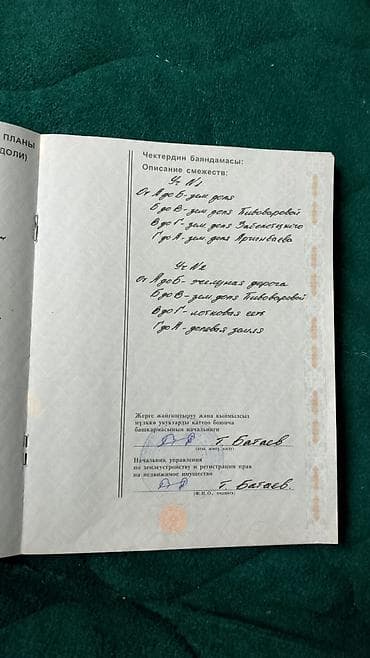 ПЛАНЫ
ДОЛИ)
Чектердин баяндамасы:
Описание смежеств:
Уч N1
От А до Б - зем. доля
Б до В - зем. доля Пивоваровой
В до Г - зем. доля Заболотнего
Г до А - зем. доля
Уч N2
От А до Б - дорога
Б до В - зем. доля Пивоваровой
В до Г - лотковая сеть
Г до А - долевая земля
Жерге жайгаштыруу жана кыймылсыз
мүлккө укуктарды каттоо боюнча
башкармасынын начальниги
Т. Батаев
(аты, жөнү, колу)
Начальник управления
по землеустройству и регистрации прав
на недвижимое имущество
Т. Батаев.
(Ф.И.О., подпись)